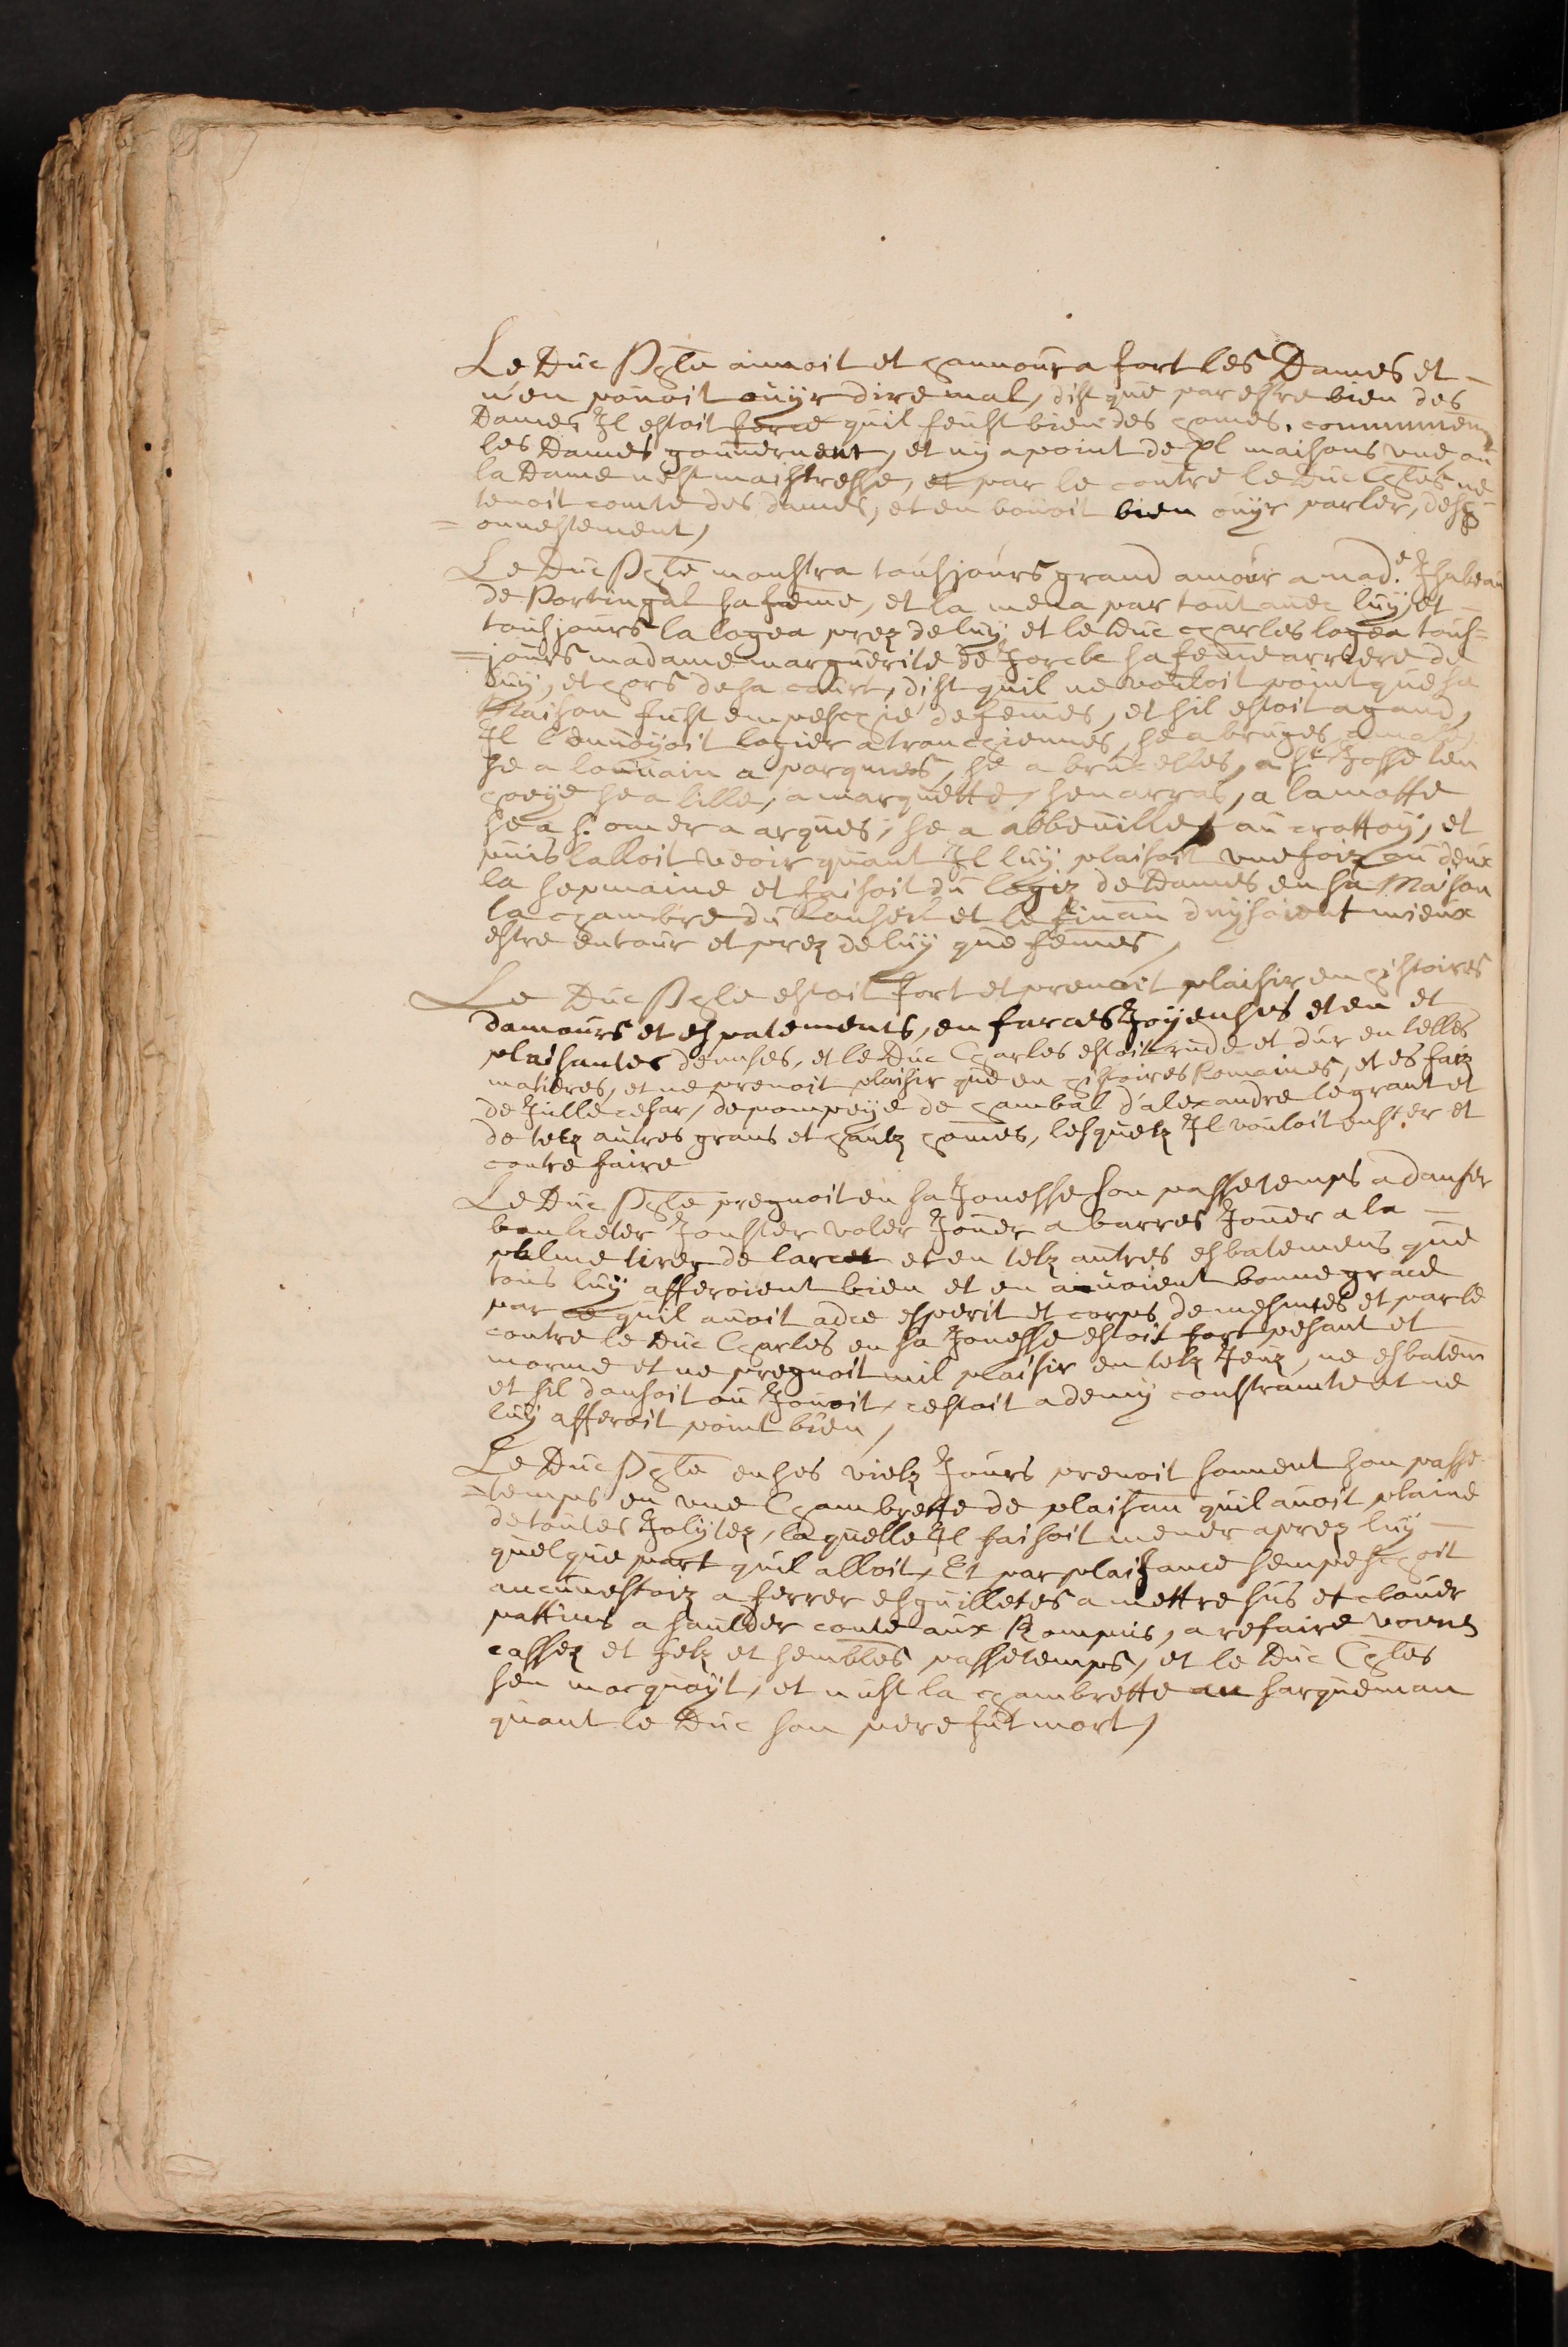 Le Duc Phle aimoit et hannoura fort les Dames et
n'en povoit ouyr dire mal, dist que par estre bien des
Dames Il estoit force quil feust bien des homes, communem
les Dames gouvernent, et ny a point de xl maisons une ou
la Dame nest maistresse, et par le contre le Duc Chles ne
tenoit comte des dames, et en vouoit bien ouyr parler, desh
onnestement,
Le Duc Phle monstra tousjours grand amour a mad.e Isabeau
de Portingal sa feme, et la mena par tout avec luy, et
tousjours la logea prez de luy, et le Duc charles logea tous=
=jours madame marguerite de Jorcke sa feme arriere de
luy, et hors de sa court, dist quil ne vouloit point que sa
Maison fust empeschie de femes, et sil estoit a gand,
Il l'envoyoit logier a tronchiennes, se a bruges a male
se a louvain a parques, se a brucelles, a st Josse ten
hoeye se a lille, a marquette, sen arras, a la motte
se a s. omer a arques, se a abbeville au crottoy, et
puis lalloit veoir quant Il luy plaisoit une foiz ou deux
la sepmaine et faisoit du logiz de Dames en sa Maison
la chambre du Conseil et le finan duysoient mieux
estre entour et prez de luy que femes,
Le Duc Phle estoit fort et prenoit plaisir en histoires
damours et espatements, en farces Joyeuses et en et
plaisantes devises, et le Duc Charles estoit rude et dur en telles
matieres, et ne prenoit plaisir que en histoires Romaines, et es faiz
de Julle cesar, de pompeye de hanibal d'alexandre le grant et
de telz autres grans et haulz homes, lesquelz Il vouloit ensr et
contrefaire
Le Duc Phle pregnoit en sa Jonesse son passetemps a danser
bancketer Jouster voler Jouer a barres Jouer a la
palme tirer de larcet et en telz autres esbatemens que
tous luy afferoient bien et en avoient bonne grace
par ce quil avoit adce esperit et corps de mesmes et par le
contre le Duc Charles en sa Jonesse estoit fort pesant et
morne et ne pregnoit nul plaisir en telz Jeuz, ne esbatem
et sil dansoit ou Jouoit, cestoit a demy constraint et ne
luy afferoit point bien,
Le Duc Phle en ses vielz Jours prenoit souvent son passe-
=temps en une Chambrette de plaisan quil avoit plaine
de toutes Jolytez, laquelle Il faisoit mener aprez luy
quelque part quil alloit, Et par plaisance sempeschoit
aucunesfoiz a ferrer esguilletes a mettre sus et clouer
pattins a saulder coute aux Rompuis, a refaire voires
cassez et telz et sembles passetemps, et le Duc Chles
sen mocquoyt, et mist la chambrette au sarqueman
quant le Duc son pere fut mort,